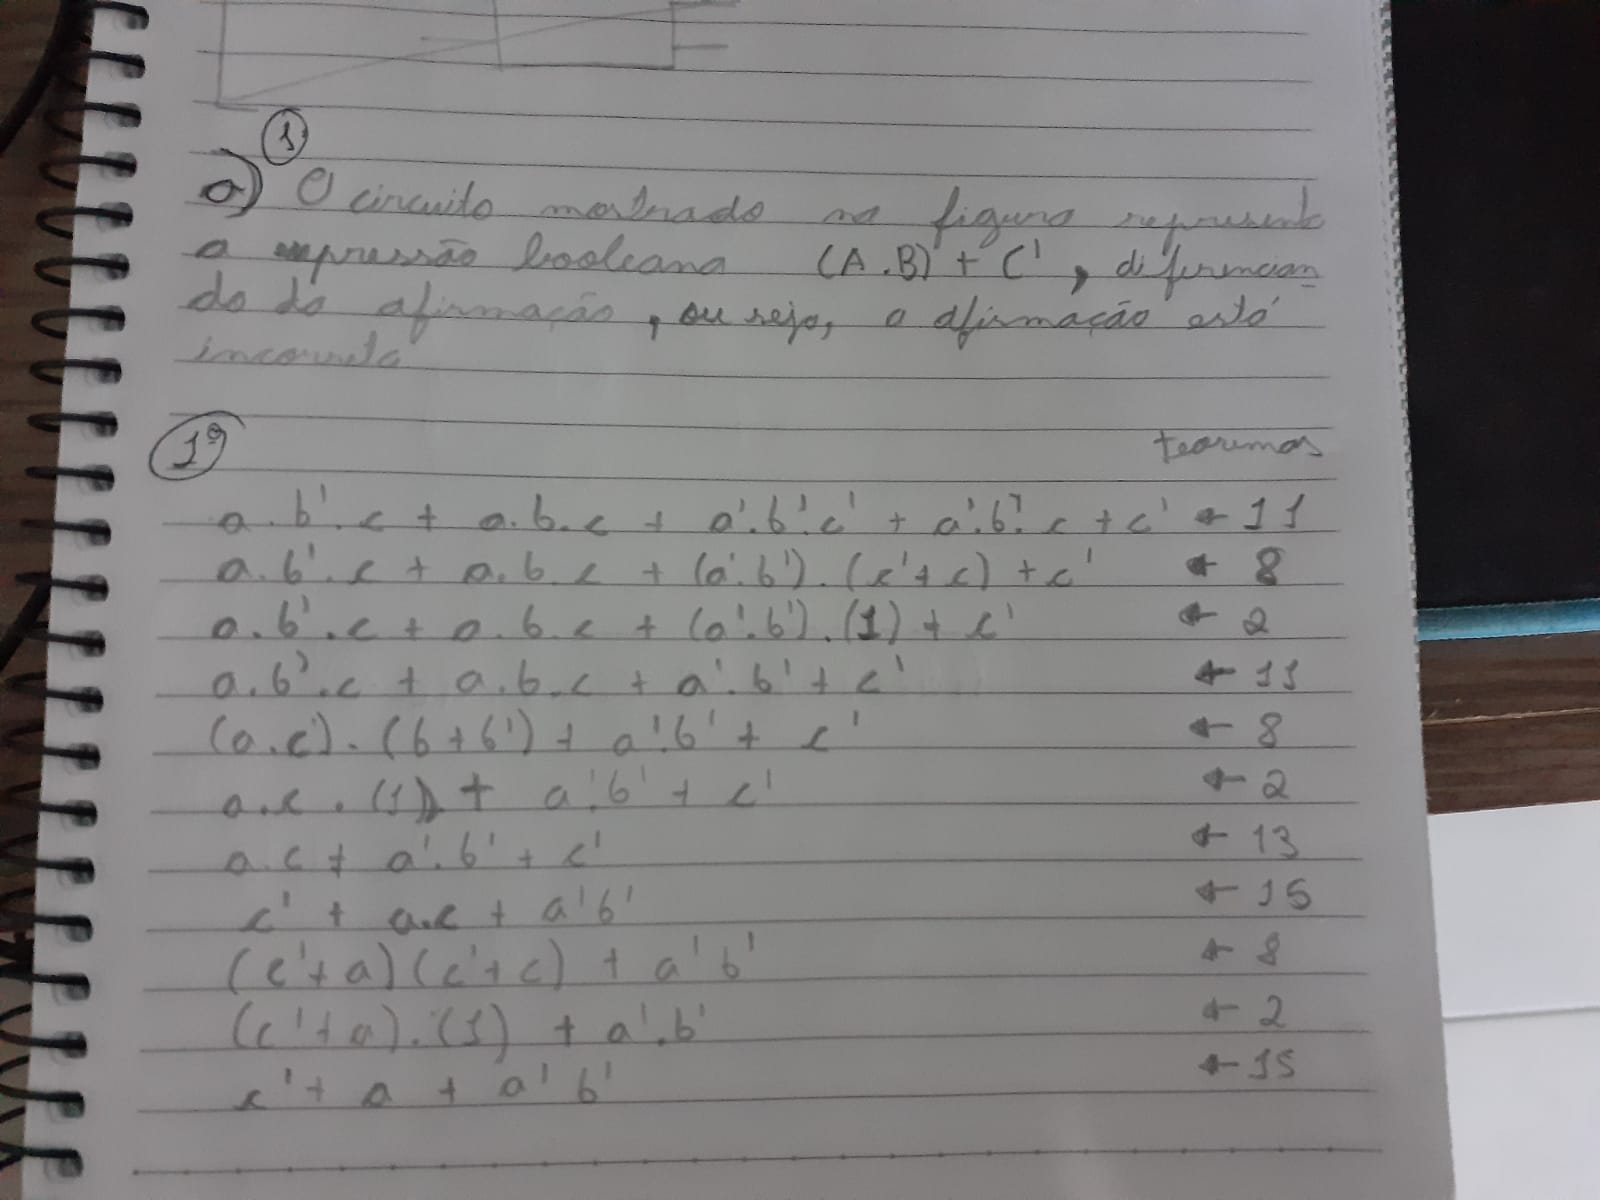 1
a) O circuito mostrado na figura representa
a expressão booleana (A.B) + C', diferencian
do da afirmação, ou seja, a afirmação está
incorreta
1º
teoremas
a.b'.c + a.b.c + a'.b'.c' + a'.b'.c + c' ← 11
a.b'.c + a.b.c + (a'.b').(c'+c) + c' ← 8
a.b'.c + a.b.c + (a'.b').(1) + c' ← 2
a.b'.c + a.b.c + a'.b' + c' ← 11
(a.c).(b+b') + a'.b' + c' ← 8
a.c.(1) + a'.b' + c' ← 2
a.c + a'.b' + c' ← 13
c' + a.c + a'b' ← 15
(c'+a)(c'+c) + a'b' ← 8
(c'+a).(1) + a'.b' ← 2
c' + a + a'b' ← 15